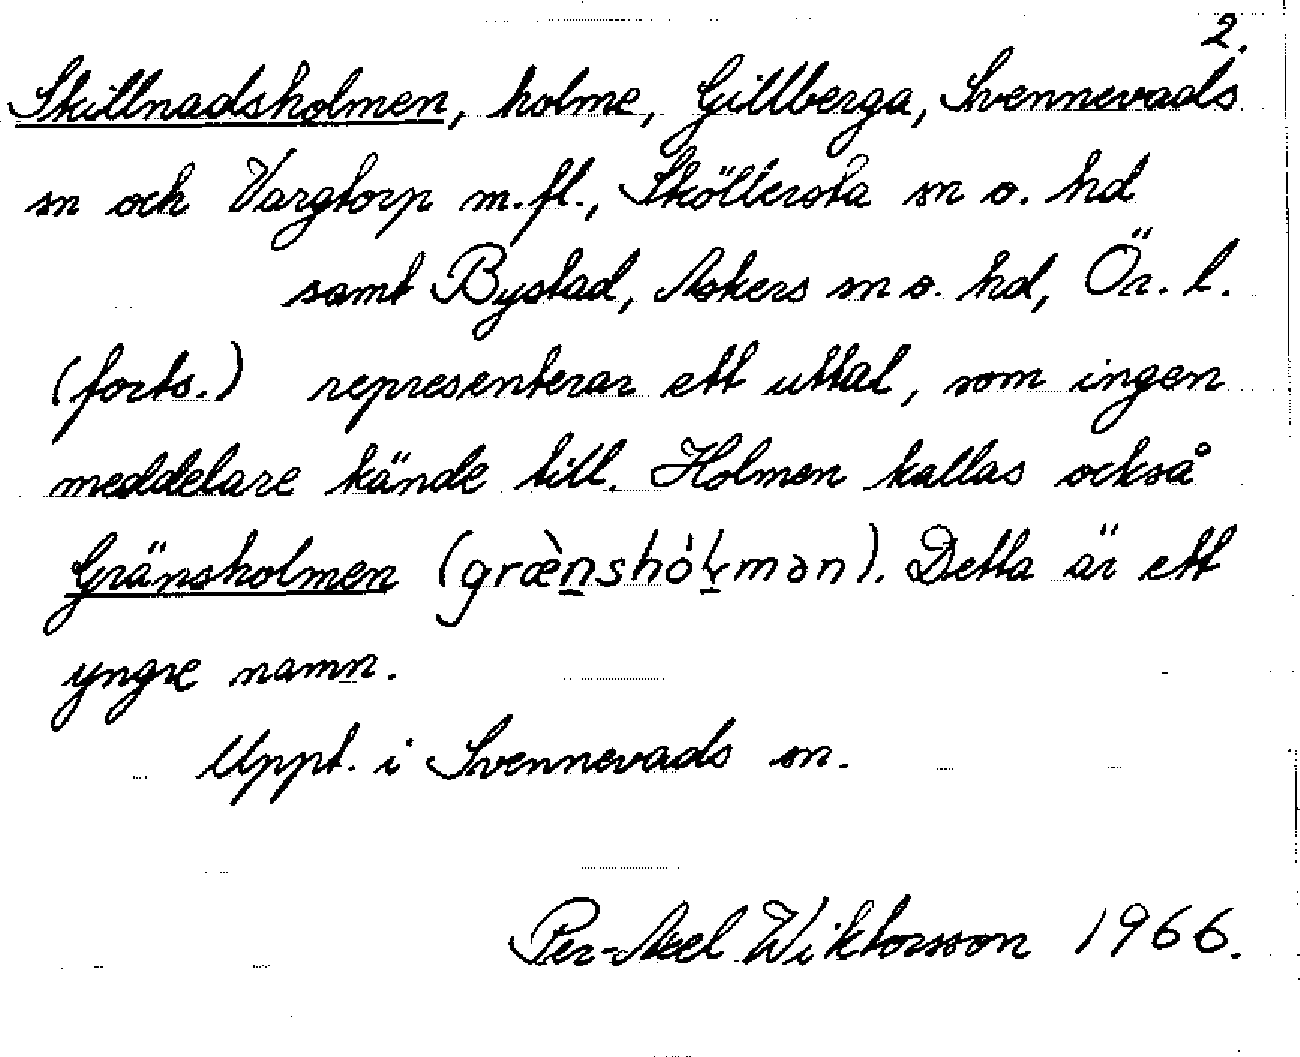 2.
Skillnadsholmen, holme, Gillberga, Svennevads
sn och Vargtorp m.fl., Sköllersta sn o. hd
samt Bystad, Askers sn o. hd, Ör. l.
(forts.) representerar ett uttal, som ingen
meddelare kände till. Holmen kallas också
Gränsholmen (græ̀n̠shó̇ɫ̠mən). Detta är ett
yngre namn.
Uppt. i Svennevads sn.
Per-Axel Wiktorsson 1966.